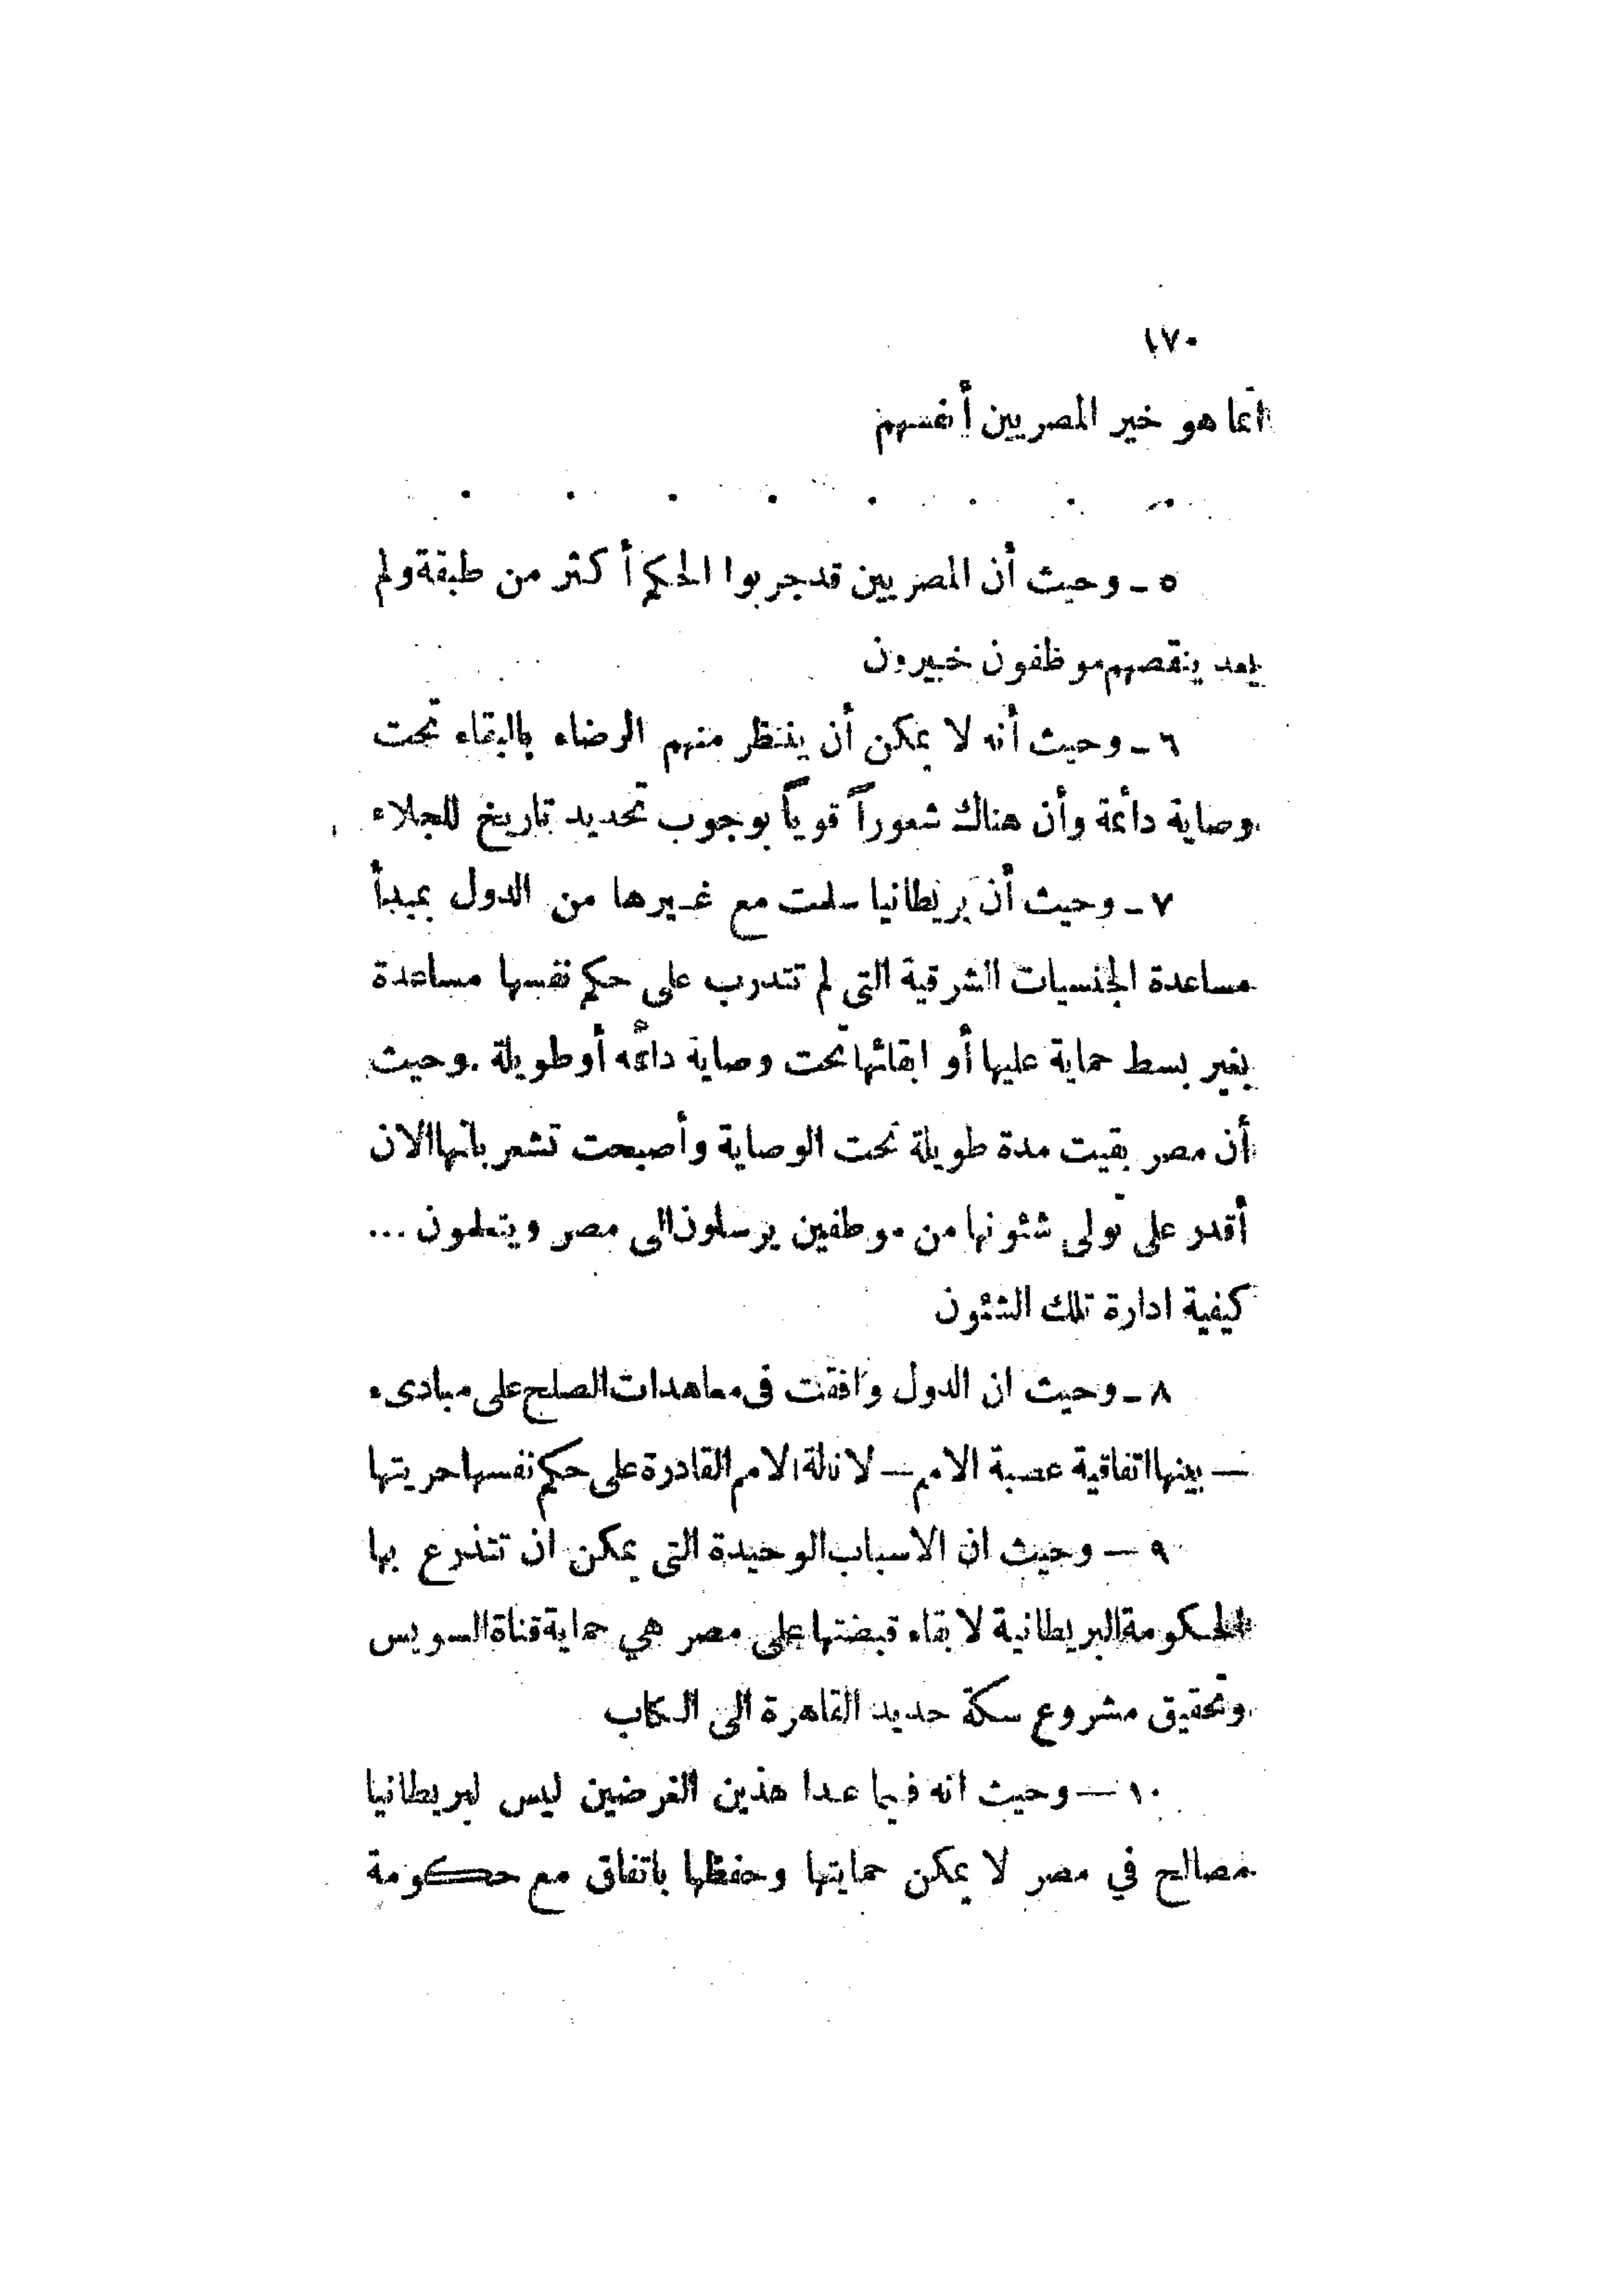 ١٧٠
انما هو خير المصريين أنفسهم
. . . . . . . .
٥ - وحيث أن المصريين قد جربوا الحكم أكثر من طبقة ولم
يعد ينقصهم موظفون خبيرون
٦ - وحيث أنه لا يمكن أن ينتظر منهم الرضاء بالبقاء تحت
وصاية دائمة وأن هناك شعوراً قوياً بوجوب تحديد تاريخ للجلاء
٧ - وحيث أن بريطانيا سلمت مع غيرها من الدول بمبدأ
مساعدة الجنسيات الشرقية التى لم تتدرب على حكم نفسها مساعدة
بغير بسط حماية عليها أو ابقائها تحت وصاية دائمه أو طويلة . وحيث
أن مصر بقيت مدة طويلة تحت الوصاية وأصبحت تشعر بانها الان
أقدر على تولى شئونها من موظفين يرسلون الى مصر ويتعلمون ...
كيفية ادارة تلك الشئون
٨ - وحيث ان الدول وافقت فى معاهدات الصلح على مبادىء
— بينها اتفاقية عصبة الامم — لانالة الامم القادرة على حكم نفسها حريتها
٩ — وحيث ان الاسباب الوحيدة التى يمكن ان تتذرع بها
الحكومة البريطانية لابقاء قبضتها على مصر هي حماية قناة السويس
وتحقيق مشروع سكة حديد القاهرة الى الكاب
١٠ — وحيث انه فيما عدا هذين الغرضين ليس لبريطانيا
مصالح في مصر لا يمكن حمايتها وحفظها باتفاق مع حكومة